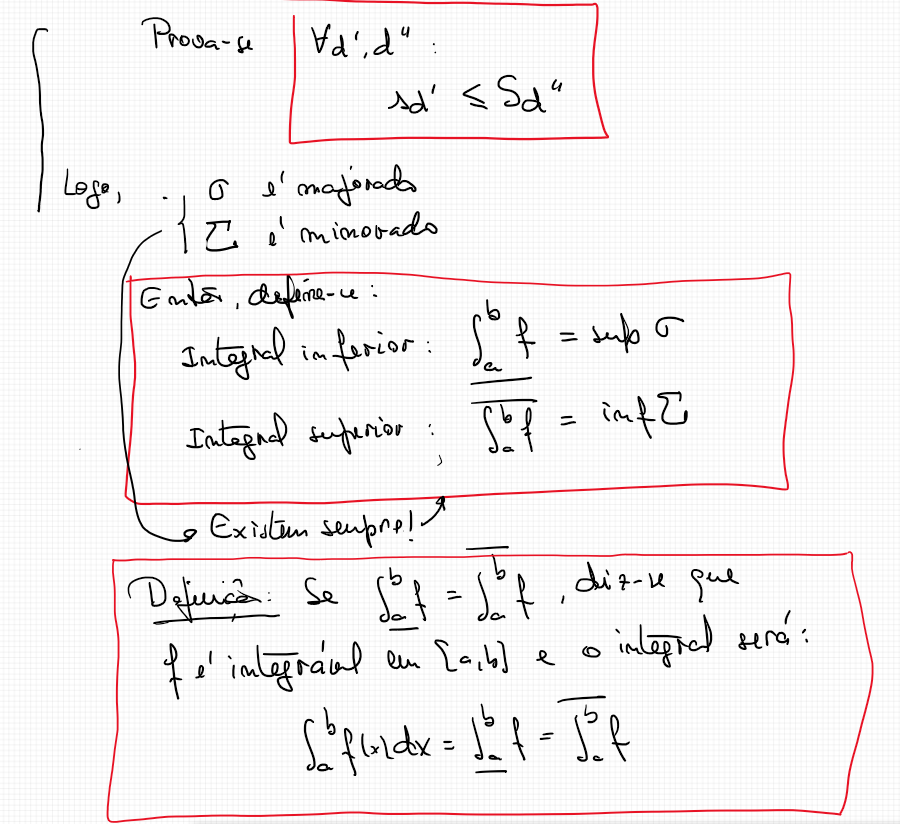 Prova-se ∀d', d'' :
sd' ≤ Sd''
Logo, σ é majorado
Σ é minorado
Então, define-se :
Integral inferior : ∫_a^b f = sup σ
Integral superior : ∫_a^b f = inf Σ
Existem sempre!
Definição: Se ∫_a^b f = ∫_a^b f , diz-se que
f é integrável em [a,b] e o integral será :
∫_a^b f(x)dx = ∫_a^b f = ∫_a^b f